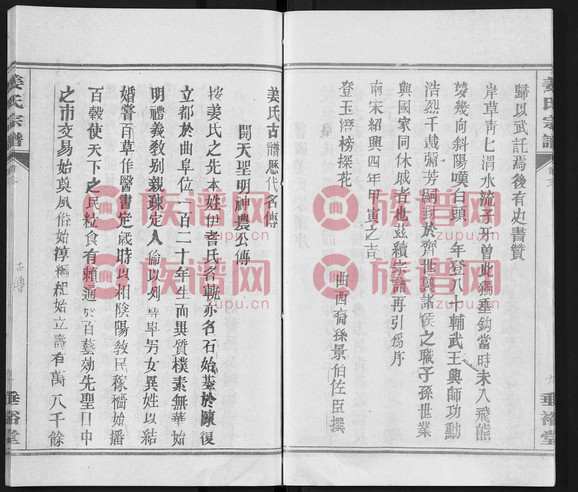 姜氏宗譜
歸以武註焉後有史書贊
岸草青匕渭水流子牙曾此獨垂鈎當時未入飛熊
夢幾向斜陽嘆白頭 年登八十輔武王興師功勳
浩烈千載彌芳嗣封於齊世與諸侯之職子孫世業
與國家同休戚者也玆續宗譜再引爲序
南宋紹興四年甲寅之吉
登玉滘榜探花
曲西裔孫景伯佐臣撰
垂裕堂
姜氏宗譜
姜氏古譜歷代名傳
開天聖明神農公傳
按姜氏之先本姓伊耆氏名軌亦名石始基於陳復
立都於曲阜位一百二十年生而異質樸素無華始
明禮義教別親疎定人倫以列尊卑男女異姓以結
婚嘗百草作醫書定歲時以相陰陽教民稼穡始播
百穀使天下之民粒食有賴通於百藝効先聖日中
之市交易始奠風俗始淳綱紀始立壽有萬八千餘
古傳
垂裕堂
族谱网
zupu.cn
族谱网
zupu.cn
族谱网
zupu.cn
族谱网
zupu.cn